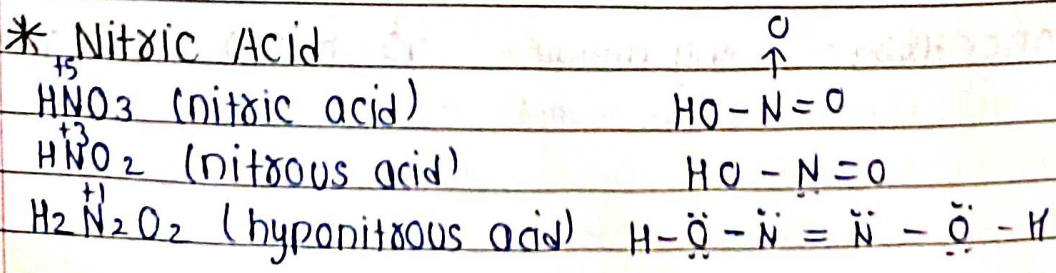 * Nitric Acid
O
↑
+5
HNO3 (nitric acid) HO-N=O
+3
HNO2 (nitrous acid) HO-N̤=O
+1
H2N2O2 (hyponitrous acid) H-Ö̤-N̈=N̈-Ö̤-H